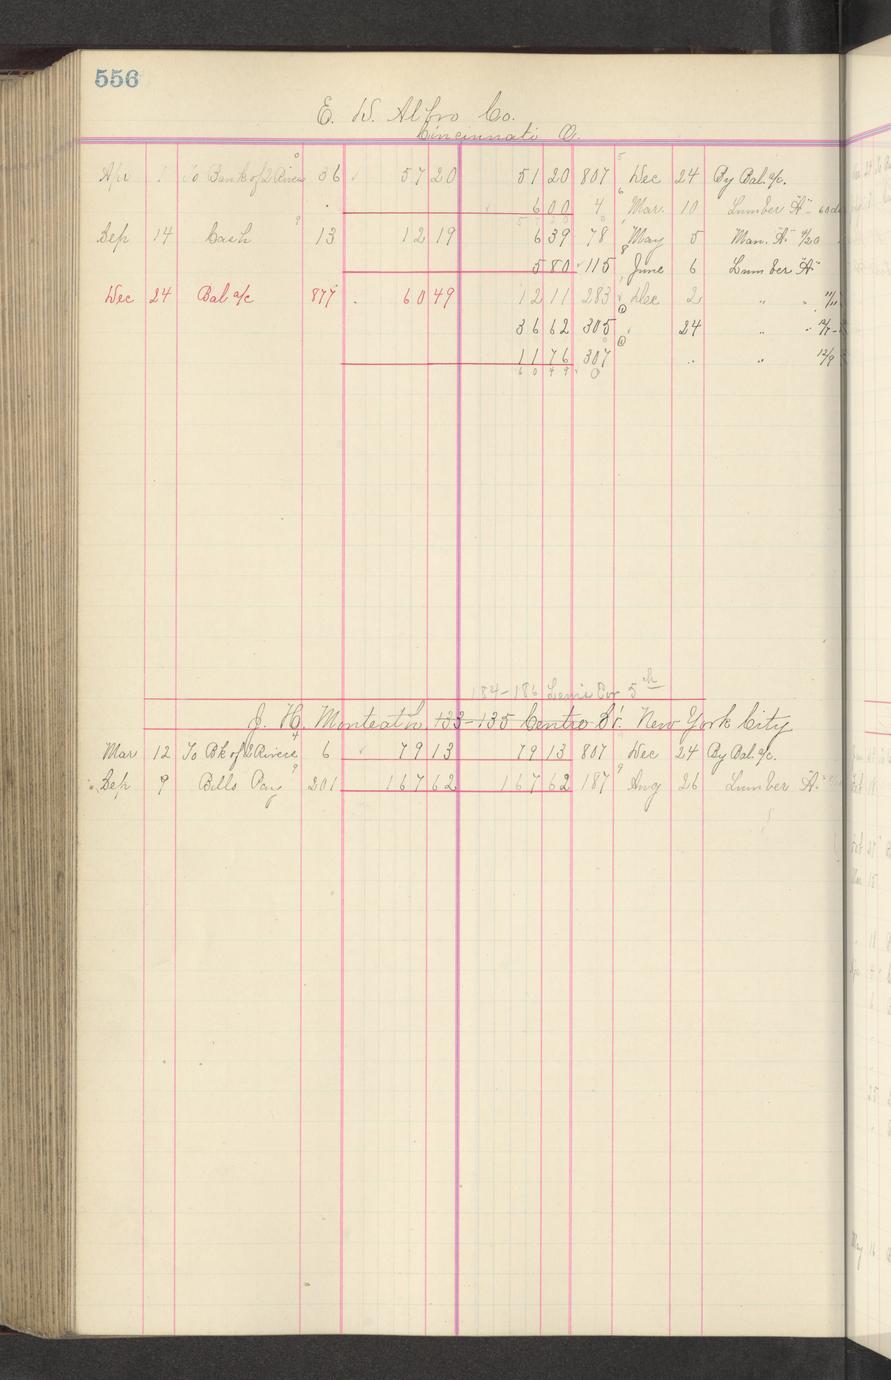 556
E. W. Co.
Cincinnati O.
Apr 1 To Bank of 2 Rivers 36 57 20 51 20 807 Dec 24 By Bal. a/c.
6 00 4 Mar. 10 Lumber A"
Sep 14 Cash 13 12 19 6 39 78 May 5 Man. A" 4/20
5 80 115 June 6 Lumber A"
Dec 24 Bal a/c 877 60 49 12 11 283 Dec 2 " "
36 62 305 24 " "
11 76 307 " " 12/9
60 49
184-186 Cor 5th
J. H. Monteath, 133-135 Centre St. New York City
Mar 12 To Bk of 2 Rivers 6 79 13 79 13 807 Dec 24 By Bal. a/c.
Sep 9 Bills Pay 201 167 62 167 62 187 Aug 26 Lumber A"